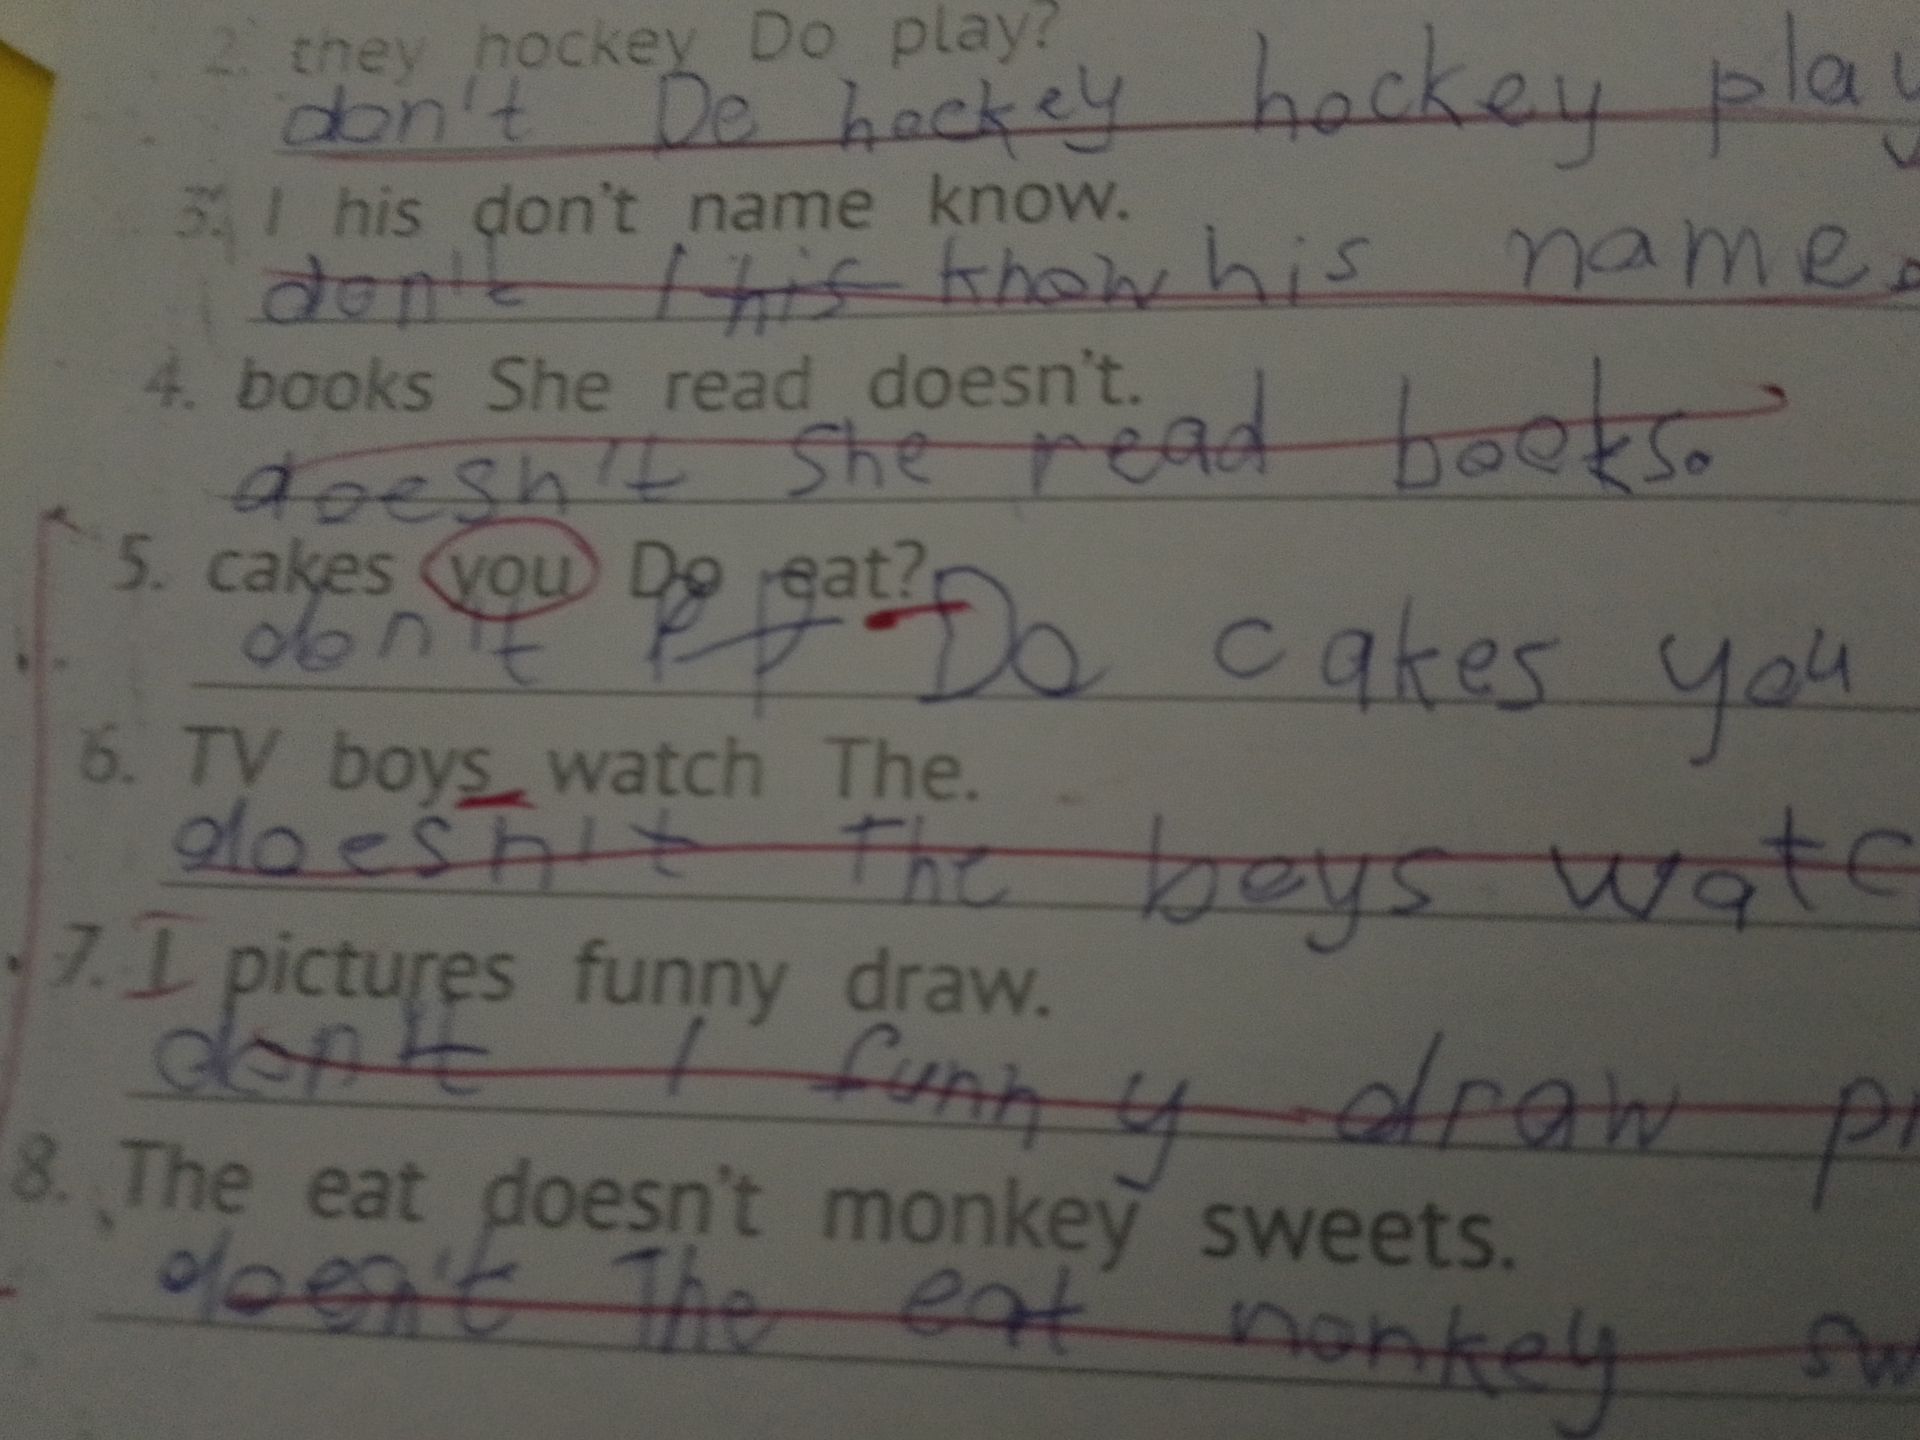 2. they hockey Do play?
don't Do hockey hockey play
3. I his don't name know.
don't I his know his name.
4. books She read doesn't.
doesn't She read books.
5. cakes you Do eat?
don't Do cakes you
6. TV boys watch The.
doesn't The boys watc
7. I pictures funny draw.
don't I funny draw pi
8. The eat doesn't monkey sweets.
doesn't The eat nonkey sw